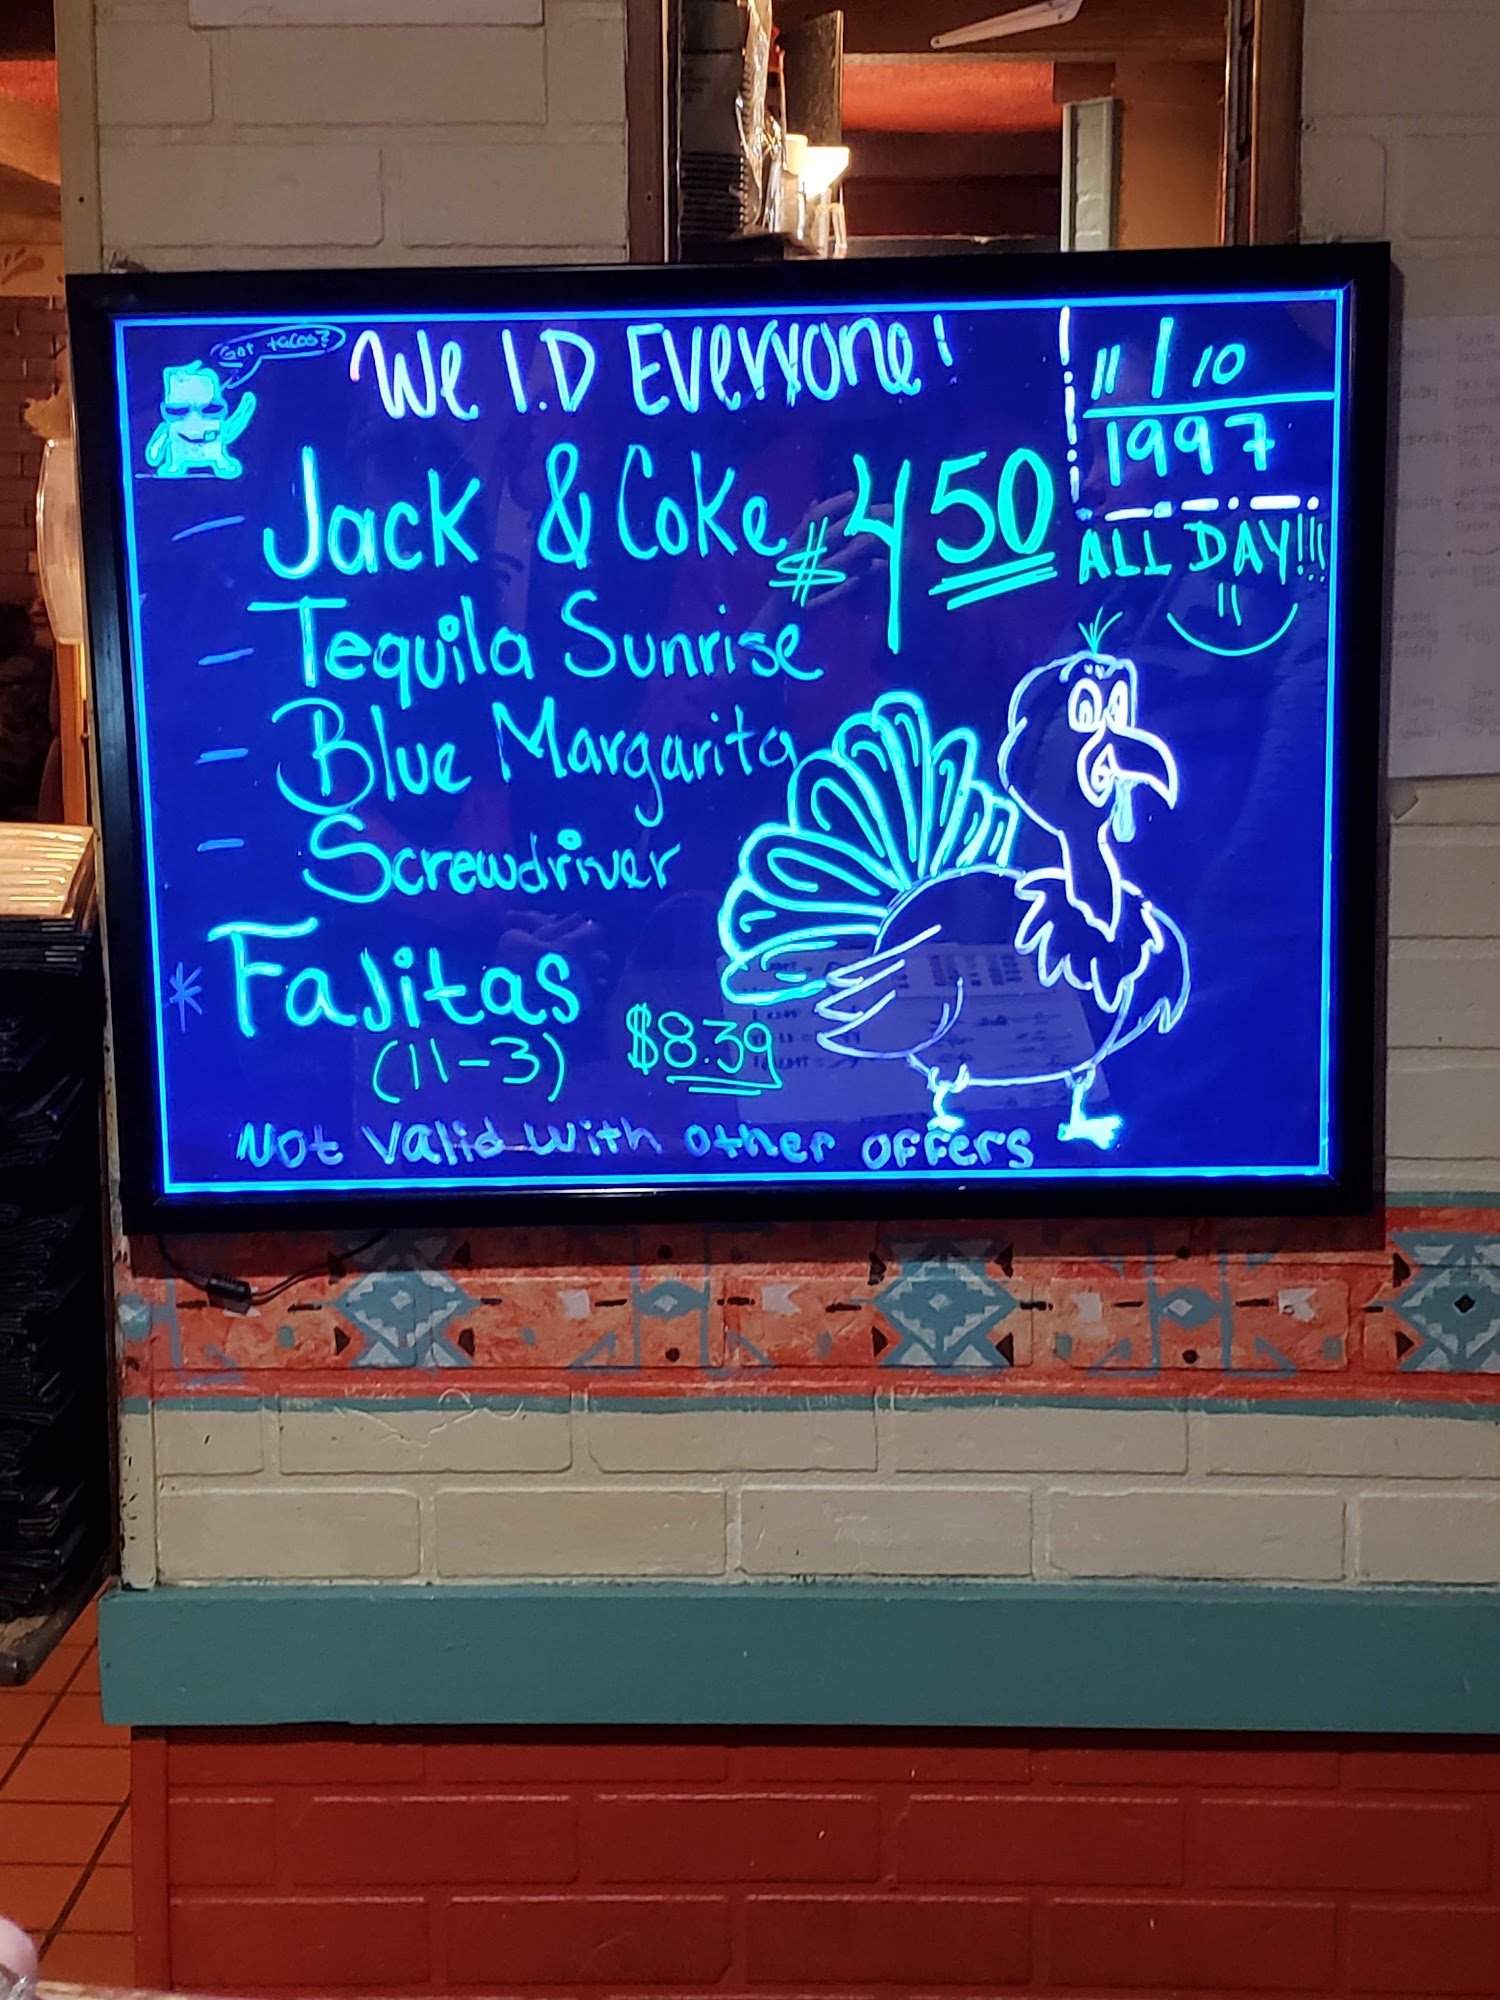 Got tacos?
We I.D Everyone!
11/10
1997
- Jack & Coke $4 50
ALL DAY!!!
- Tequila Sunrise
- Blue Margarita
- Screwdriver
* Fajitas
(11-3) $8.39
Not valid with other offers